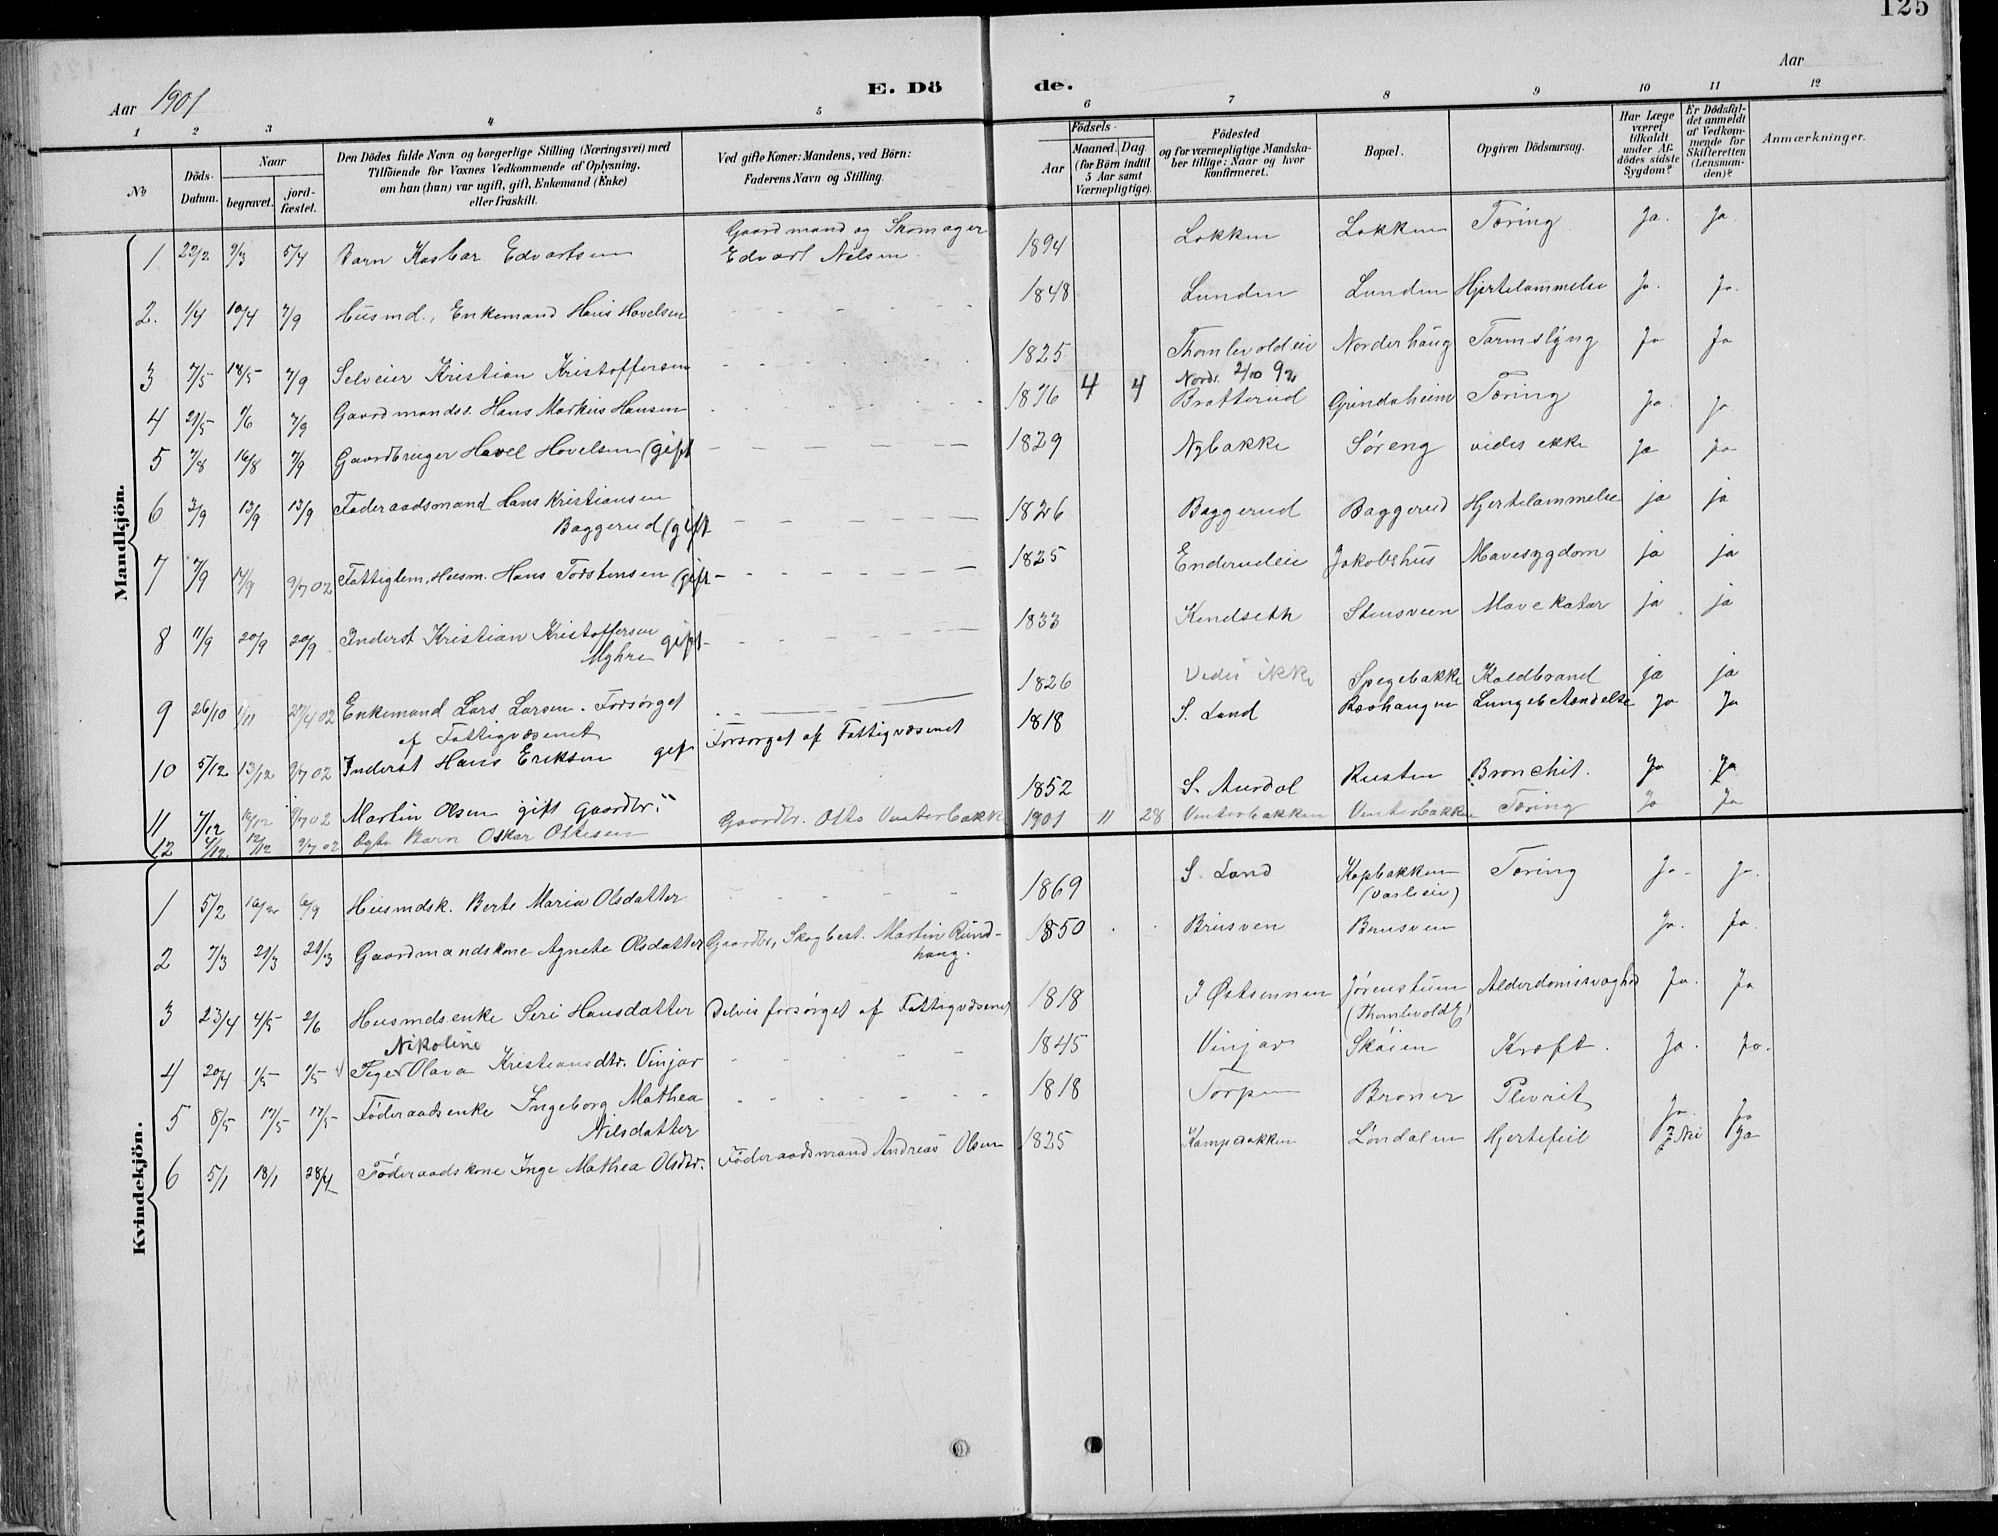 125
Aar 1901
E. Dö
de.
Aar
1 2 3 4 5 6 7 8 9 10 11 12
No
Döds-Datum.
Naar
begravet.
jord-fæstet.
Den Dödes fulde Navn og borgerlige Stilling (Næringsvei) med
Tilföiende for Voxnes Vedkommende af Oplysning,
om han (hun) var ugift, gift, Enkemand (Enke)
eller fraskilt.
Ved gifte Koner: Mandens, ved Börn:
Faderens Navn og Stilling.
Födsels-
Aar
Maaned. Dag
(for Börn indtil
5 Aar samt
Værnepligtige).
Födested
og for værnepligtige Mandska-
ber tillige: Naar og hvor
konfirmeret.
Bopæl.
Opgiven Dödsaarsag.
Har Læge
været
tilkaldt
under Af-
dödes sidste
Sygdom?
Er Dödsfal-
det anmeldt
af Vedkom-
mende for
Skifteretten
(Lensman-
den)?
Anmærkninger.
Mandkjön.
1 22/2 9/3 5/4 Barn Kasbar Edvartsen Gaardmand og Skomager Edvart Nilsen. 1894 Løkken Løkken Tæring Ja. Ja
2. 1/4 10/4 7/9 Husmd., Enkemand Hans Hovelsen 1848 Lunden Lunden Hjertelammelse Ja. Ja.
3 7/5 18/5 7/9 Selveier Kristian Kristoffersen 1825 Thomlevoldeie Norderhaug Tarmslyng Ja Ja
4 21/5 1/6 7/9 Gaardmandss. Hans Markus Hansen 1876 4 4 Nords. 2/10 92 Bratterud Grindaheim Tæring Ja. Ja
5 7/8 16/8 7/9 Gaardbruger Hovel Hovelsen (gift 1829 Nybakke Søreng vides ikke Ja Ja
6 3/9 13/9 13/9 Føderaadsmand Hans Kristiansen
Baggerud (gift 1826 Baggerud Baggerud Hjertelammelse ja ja
7 7/9 17/9 9/7 02 Fattiglem, Husm. Hans Torstensen (gift 1825 Enderudeie Jakobshus Mavesygdom ja ja
8 11/9 20/9 20/9 Inderst Kristian Kristoffersen
Myhre gift 1833 Kendseth Stensveen Mavekatar ja ja
9 26/10 1/11 27/4 02 Enkemand Lars Larsen. Forsørget
af Fattigvæsenet 1826 Vides ikke Spegebakke Koldbrand ja ja
10 5/12 13/12 9/7 02 Inderst Hans Eriksen gift Forsørget af Fattigvæsenet 1818 S. Land Røvhaugen Lungebetændelse Ja Ja
11 7/12 16/12 9/7 02 Martin Olsen gift Gaardbr. 1852 S. Aurdal Rusten Bronchit. Ja Ja
12 4/12 12/12 9/7 02 Ægte Barn Oskar Ottesen Gaardbr. Otto Vinterbakk 1901 11 28 Vinterbakken Vinterbakken Tæring Ja Ja
Kvindekjön.
1 5/2 16/2 6/9 Husmdsk. Berte Maria Olsdatter 1869 S. Land Kopbakken
(Vaslieie) Tæring Ja Ja.
2 7/3 21/3 21/3 Gaardmandskone Agnete Olsdatter Gaardbr, Skogbest. Martin Rund-
haug. 1850 Brusven Brusven Ja. Ja.
3 23/4 4/5 2/6 Husmdsenke Seri Hansdatter Delvis forsørget af Fattigvæsenet 1818 I Østsennen Jørenstuen
(Thomlevoldf) Alderdomssvaghed Ja. Ja
Nikoline
4 20/4 1/5 1/5 Pige Olava Kristiansdtr. Vinjar 1845 Vinjar Skøien Kræft. Ja. Ja.
5 8/5 17/5 17/5 Føderaadsenke Ingeborg Mathea
Nilsdatter 1818 Torpen Broner Plevrit Ja. Ja
6 5/1 18/1 28/4 Føderaadskone Inge Mathea Olsdtr. Føderaadsmand Andreas Olsen 1825 Kampebakken Løndalen Hjertefeil Nei Ja